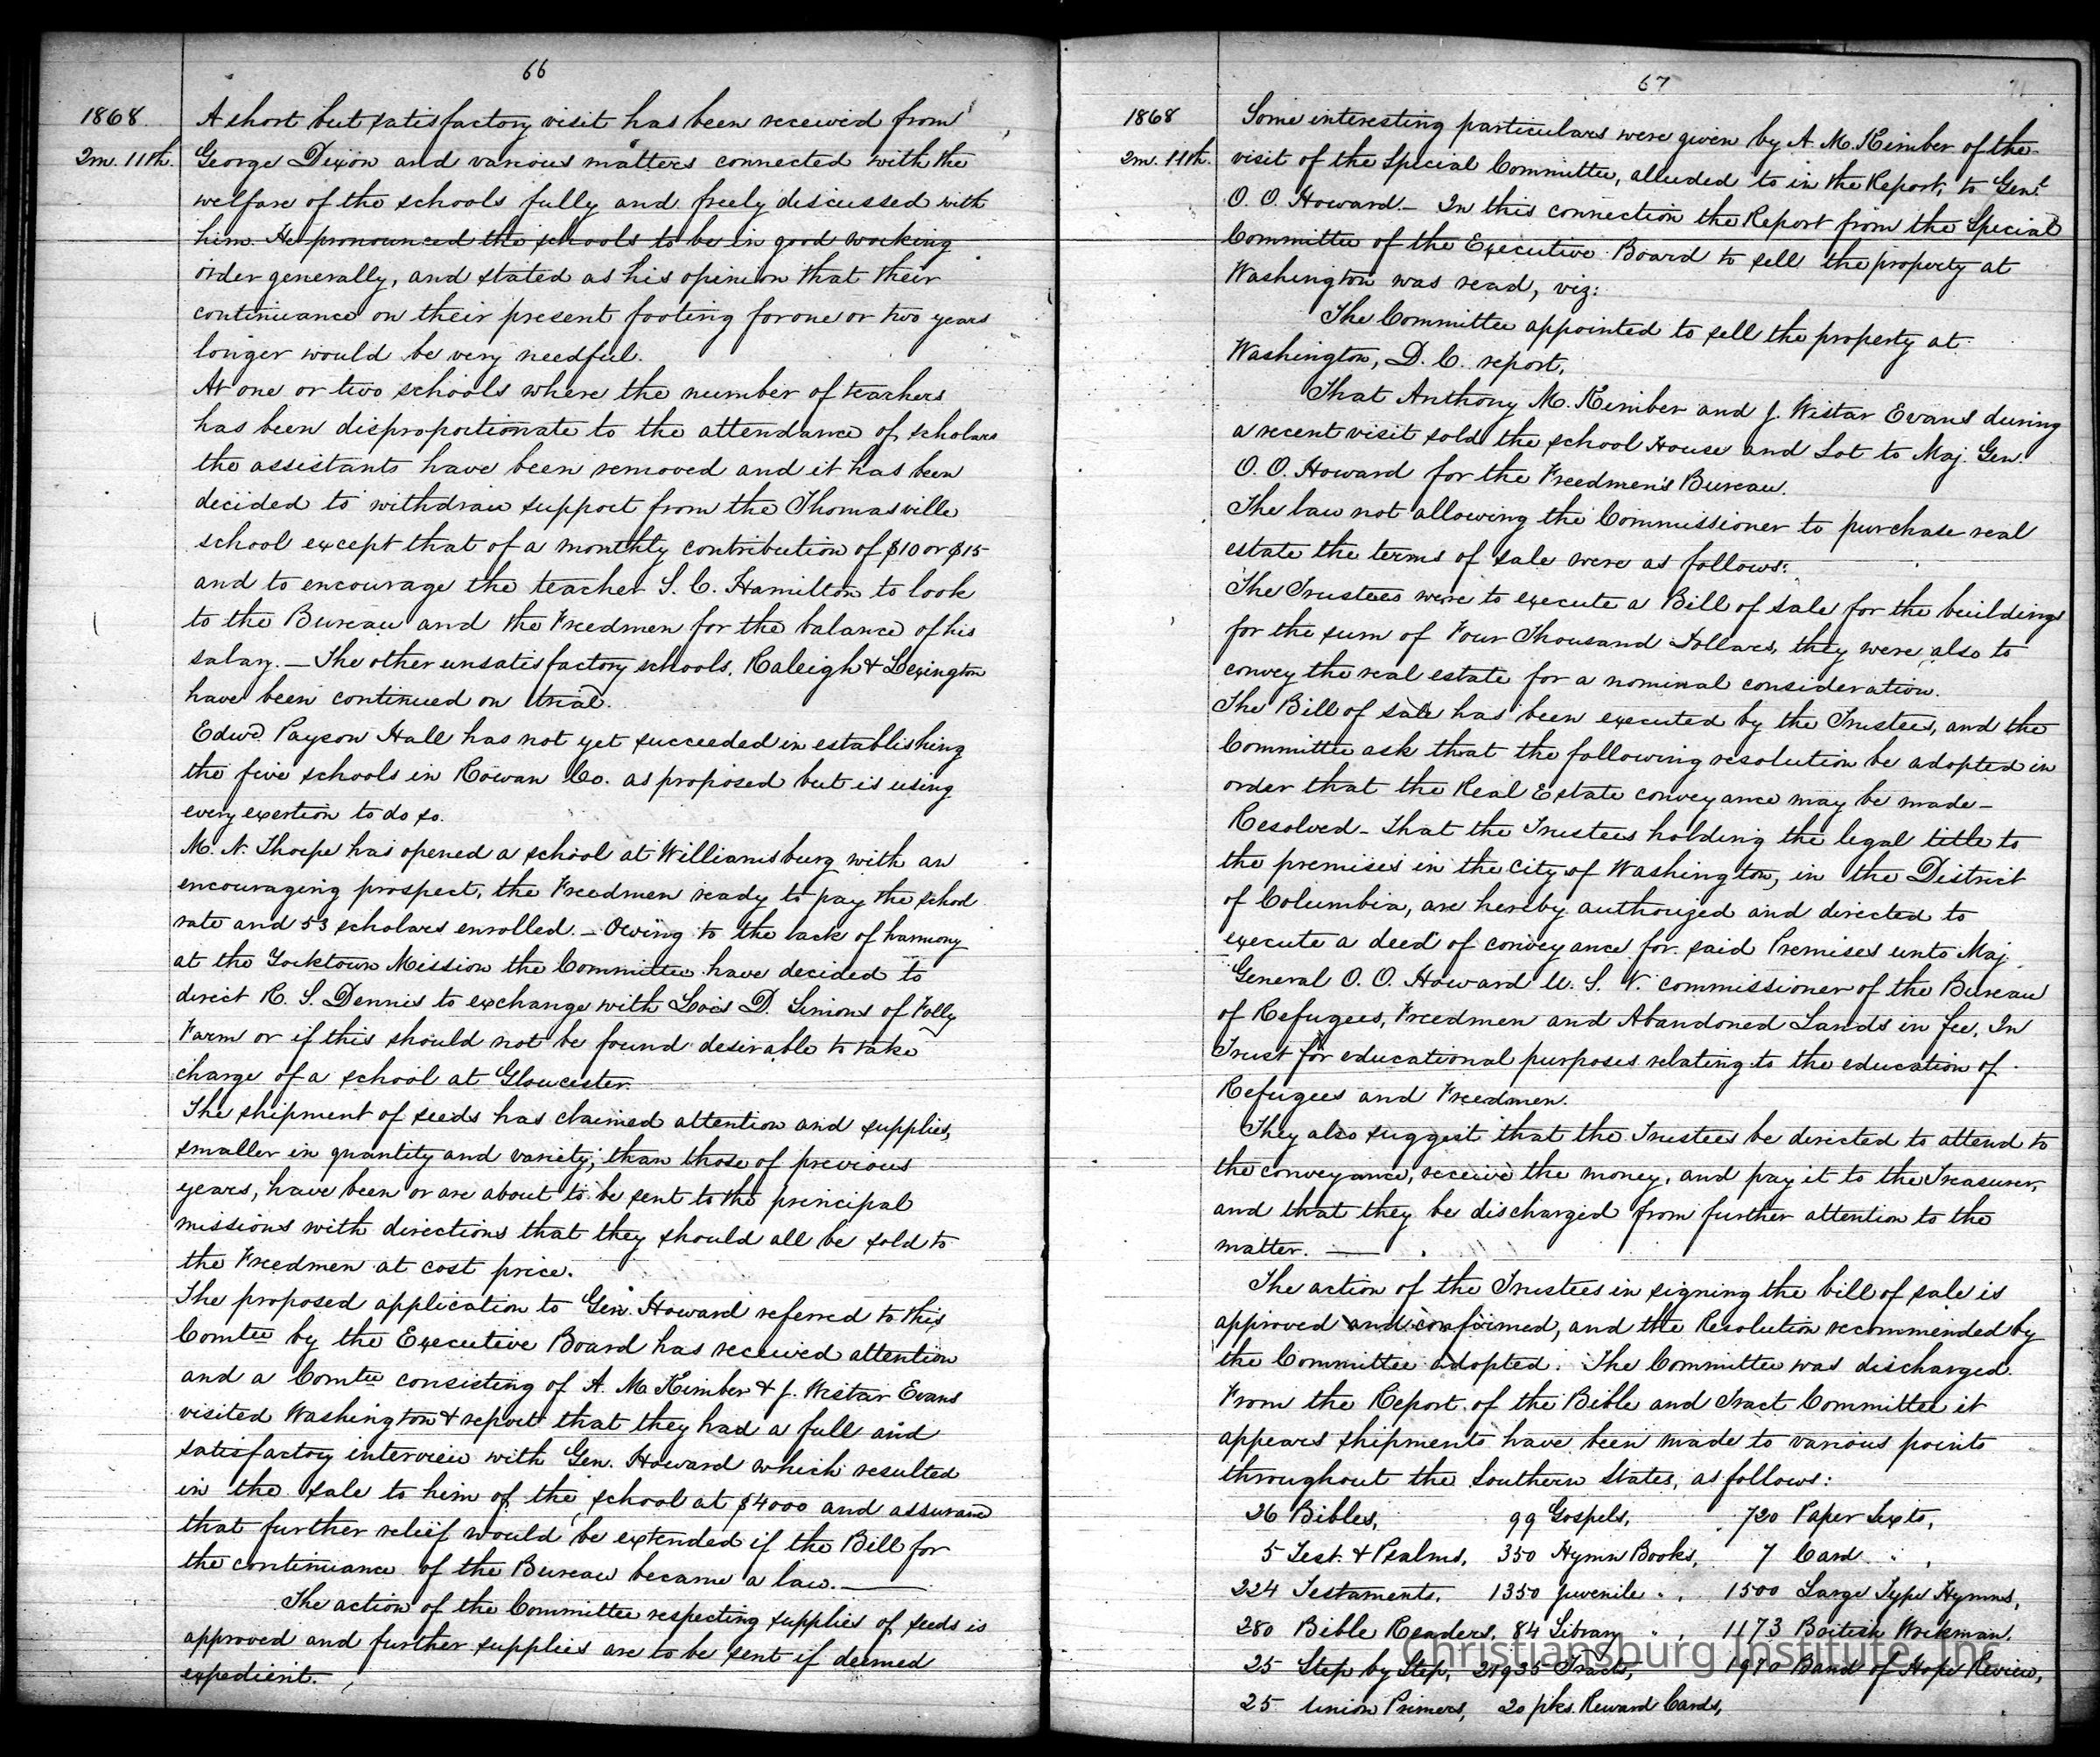 66
1868
2m. 11th.
A short but satisfactory visit has been received from
George Dixon and various matters connected with the
welfare of the schools fully and freely discussed with
him. He pronounced the schools to be in good working
order generally, and stated as his opinion that their
continuance on their present footing for one or two years
longer would be very needful.
At one or two schools where the number of teachers
has been disproportionate to the attendance of scholars
the assistants have been removed and it has been
decided to withdraw support from the Thomasville
school except that of a monthly contribution of $10 or $15
and to encourage the teacher S. C. Hamilton to look
to the Bureau and the Freedmen for the balance of his
salary. — The other unsatisfactory schools, Raleigh & Lexington
have been continued on trial.
Edwd. Payson Hall has not yet succeeded in establishing
the five schools in Rowan Co. as proposed but is using
every exertion to do so.
M. N. Thorpe has opened a school at Williamsburg with an
encouraging prospect, the Freedmen ready to pay the school
rate and 53 scholars enrolled. — Owing to the lack of harmony
at the Yorktown Mission the Committee have decided to
direct R. S. Dennis to exchange with Lois D. Simons of Folly
Farm or if this should not be found desirable to take
charge of a school at Gloucester.
The shipment of seeds has claimed attention and supplies,
smaller in quantity and variety, than those of previous
years, have been or are about to be sent to the principal
missions with directions that they should all be sold to
the Freedmen at cost price.
The proposed application to Gen. Howard referred to this
Comtee by the Executive Board has received attention
and a Comtee consisting of A. M. Kimber & J. Wistar Evans
visited Washington & report that they had a full and
satisfactory interview with Gen. Howard which resulted
in the sale to him of the school at $4000 and assurance
that further relief would be extended if the Bill for
the continuance of the Bureau became a law. —
The action of the Committee respecting supplies of seeds is
approved and further supplies are to be sent if deemed
expedient.
67
1868
2m. 11th.
Some interesting particulars were given by A. M. Kimber of the
visit of the Special Committee, alluded to in the Report, to Genl.
O. O. Howard. — In this connection the Report from the Special
Committee of the Executive Board to sell the property at
Washington was read, viz:
The Committee appointed to sell the property at
Washington, D. C. report,
That Anthony M. Kimber and J. Wistar Evans during
a recent visit sold the school House and Lot to Maj. Gen.
O. O. Howard for the Freedmen's Bureau.
The law not allowing the Commissioner to purchase real
estate the terms of sale were as follows:
The Trustees were to execute a Bill of sale for the buildings
for the sum of Four Thousand Dollars, they were also to
convey the real estate for a nominal consideration.
The Bill of sale has been executed by the Trustees, and the
Committee ask that the following resolution be adopted in
order that the Real Estate conveyance may be made —
Resolved — That the Trustees holding the legal title to
the premises in the city of Washington, in the District
of Columbia, are hereby authorized and directed to
execute a deed of conveyance for said Premises unto Maj.
General O. O. Howard U. S. V. commissioner of the Bureau
of Refugees, Freedmen and Abandoned Lands in fee, In
Trust for educational purposes relating to the education of
Refugees and Freedmen.
They also suggest that the Trustees be directed to attend to
the conveyance, receive the money, and pay it to the Treasurer,
and that they be discharged from further attention to the
matter. —
The action of the Trustees in signing the bill of sale is
approved and confirmed, and the Resolution recommended by
the Committee adopted. The Committee was discharged.
From the Report of the Bible and Tract Committee it
appears shipments have been made to various points
throughout the Southern States, as follows:
26 Bibles, 99 Gospels, 720 Paper Texts,
5 Test. & Psalms, 350 Hymn Books, 7 Card " ,
224 Testaments, 1350 Juvenile " , 1500 Large Type Hymns,
280 Bible Readers, 84 Library " , 1173 British Workman,
25 Step by Step, Tracts, 1970 Band of Hope Review,
25 Union Primers, 20 pks. Reward Cards,
Christiansburg Institute, Inc.